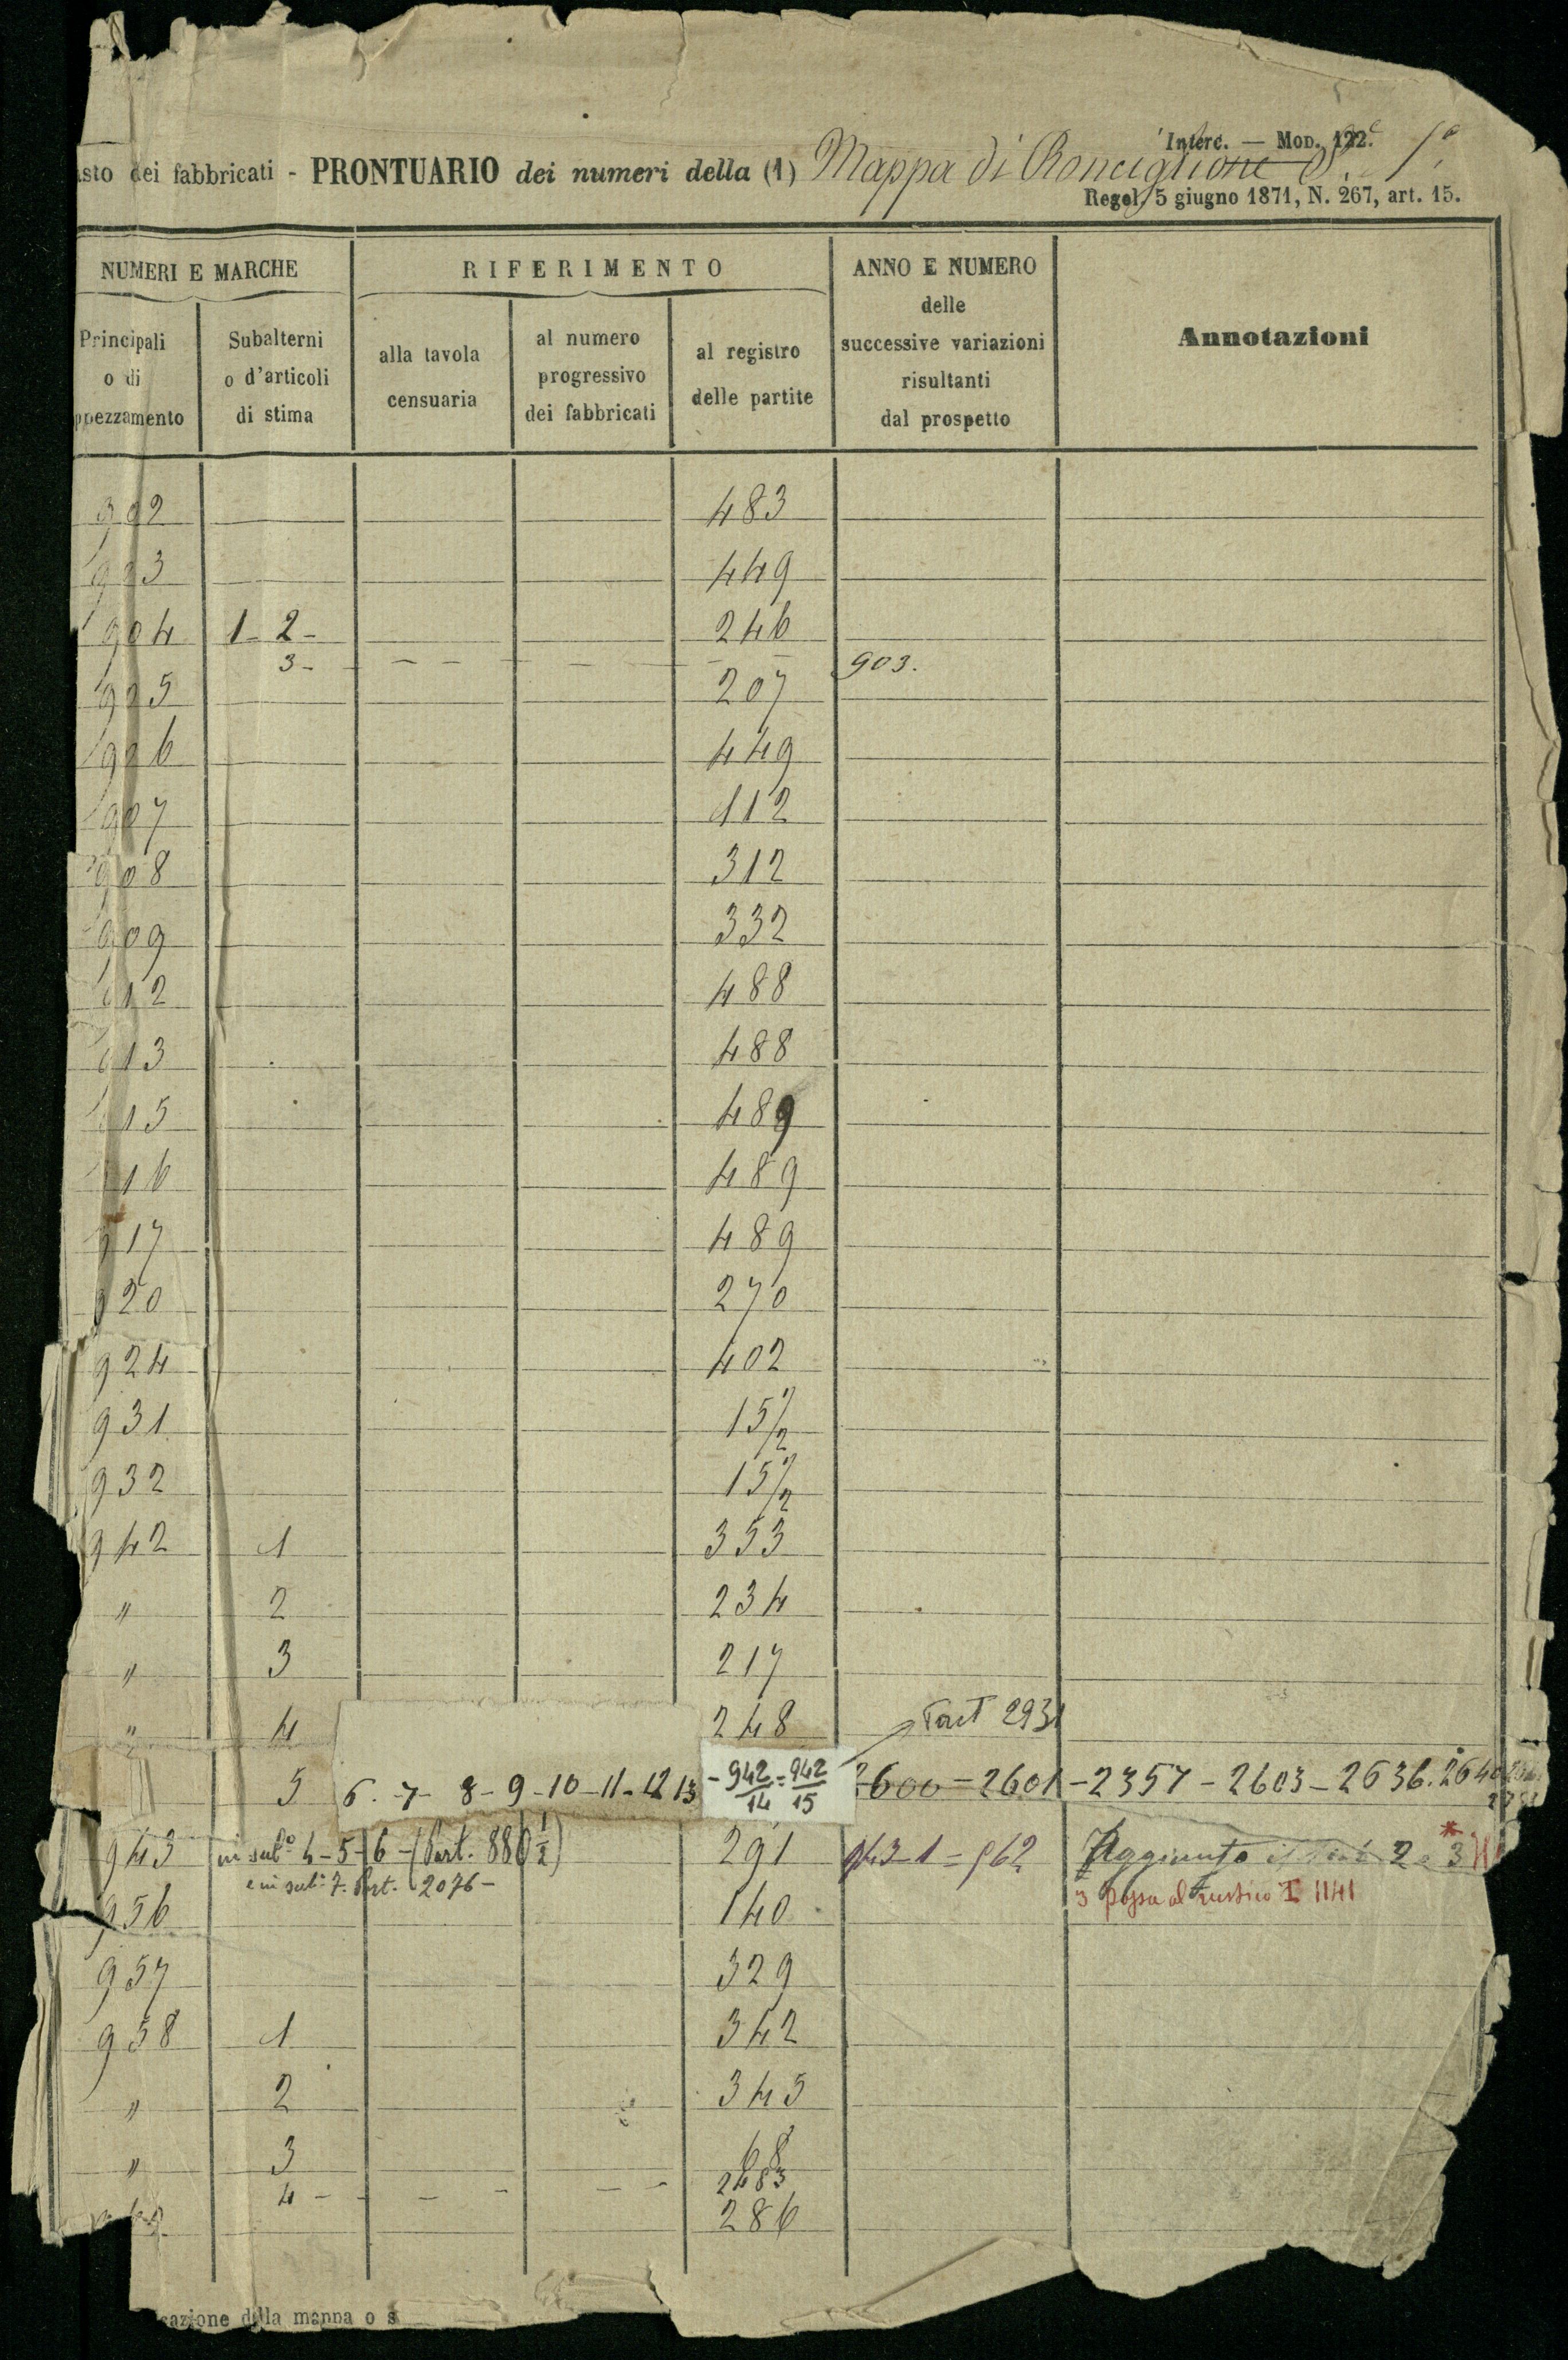 Interc. — Mod. 122.
sto dei fabbricati - PRONTUARIO dei numeri della (1) Mappa di Ronciglione
Regol. 5 giugno 1871, N. 267, art. 15.
NUMERI E MARCHE RIFERIMENTO ANNO E NUMERO delle successive variazioni risultanti dal prospetto Annotazioni
Principali o di ppezzamento Subalterni o d'articoli di stima alla tavola censuaria al numero progressivo dei fabbricati al registro delle partite
902 483
903 449
904 1 - 2 - 246
3 - 903.
905 207
906 449
907 112
908 312
909 332
912 488
913 488
915 489
916 489
917 489
920 270
924 402
931 15 1/2
932 15 1/2
942 1 353
" 2 234
" 3 217
" 4 248 Part 2931
5 6 - 7 - 8 - 9 - 10 - 11 - 12 13 - 942/14 = 942/15 2600 = 2601 - 2357 - 2603 - 2636. 2640
943 in sub.° 4 - 5 - 6 - (Part. 880 1/2) 291 943-1 = 962 Aggiunto 2 3
e in sub.° 7. Part. 2076 - 3 passa al rustico I 1141
956 140
957 329
958 1 342
" 2 345
" 3 68
4 - 2483
286
azione della mappa o s